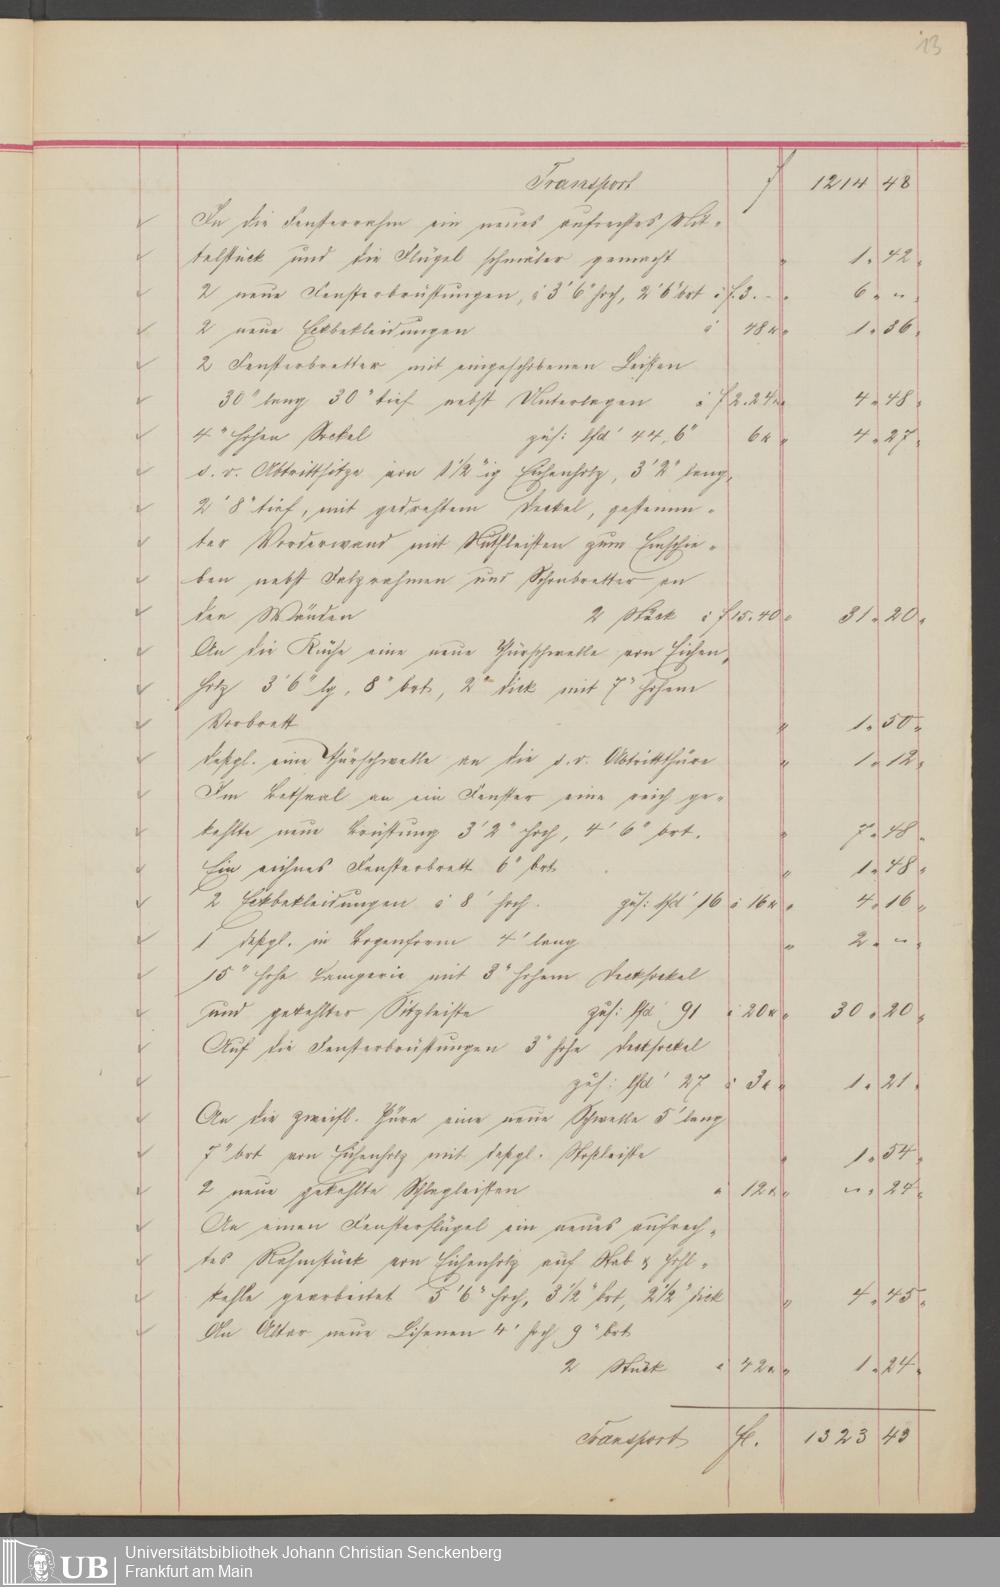 13
Transport f 1214 48
In die Fensterrahm ein neues aufrechtes Mit-
telstück und die Flügel schmäler gemacht " 1. 42.
2 neue Fensterbrüstungen, à 3' 6" hoch, 2' 6" brt à f. 3. – " 6. –.
2 neue Eckbekleidungen à 48 x " 1. 36.
2 Fensterbretter mit eingeschobenen Leisten
30" lang 30" tief nebst Unterlagen à f 2. 24 x " 4. 48.
4" hohen Sockel zus: lfd' 44, 6" 6 x " 4. 27.
s. v. Abtrittsitze von 1 1/2"ig Eichenholz, 3' 2" lang,
2' 8" tief, mit gedrehtem Deckel, gestemm-
ter Vorderwand mit Nuthleisten zum Einschie-
ben nebst Falzrahmen und Schonbretter an
den Wänden 2 Stück à f 15. 40 " 31. 20.
An die Küche eine neue Thürschwelle von Eichen-
holz 3' 6" lg, 8" brt, 2" dick mit 7" hohem
Vorbrett " 1. 50.
desgl. eine Thürschwelle an die s. v. Abtrittthüre " 1. 12.
Im Betsaal an ein Fenster eine reich ge-
kehlte neue Brüstung 3' 2" hoch, 4' 6" brt. " 7. 48.
Ein eichnes Fensterbrett 6" brt " 1. 48.
2 Eckbekleidungen à 8' hoch. zus: lfd' 16 à 16 x " 4. 16.
1 desgl. in Bogenform 4' lang " 2. –.
15" hohe Lamperie mit 3" hohem Decksockel
und gekehlter Sitzleiste zus: lfd' 91 à 20 x " 30. 20.
Auf die Fensterbrüstungen 3" hohe Decksockel
zus: lfd' 27 à 3 x " 1. 21.
An die zweifl. Thüre eine neue Schwelle 5' lang
7" brt von Eichenholz mit desgl. Stoßleiste " 1. 54.
2 neue gekehlte Schlagleisten à 12 x " –. 24.
An einen Fensterflügel ein neues aufrech-
tes Rahmstück von Eichenholz auf Stab & Hohl-
kehle gearbeitet 5' 6" hoch, 3 1/2" brt, 2 1/2" dick " 4. 45.
Am Altar neue Lisenen 4' hoch 9" brt
2 Stück à 42 x " 1. 24.
Transport fl. 1323 43
UB
Universitätsbibliothek Johann Christian Senckenberg
Frankfurt am Main